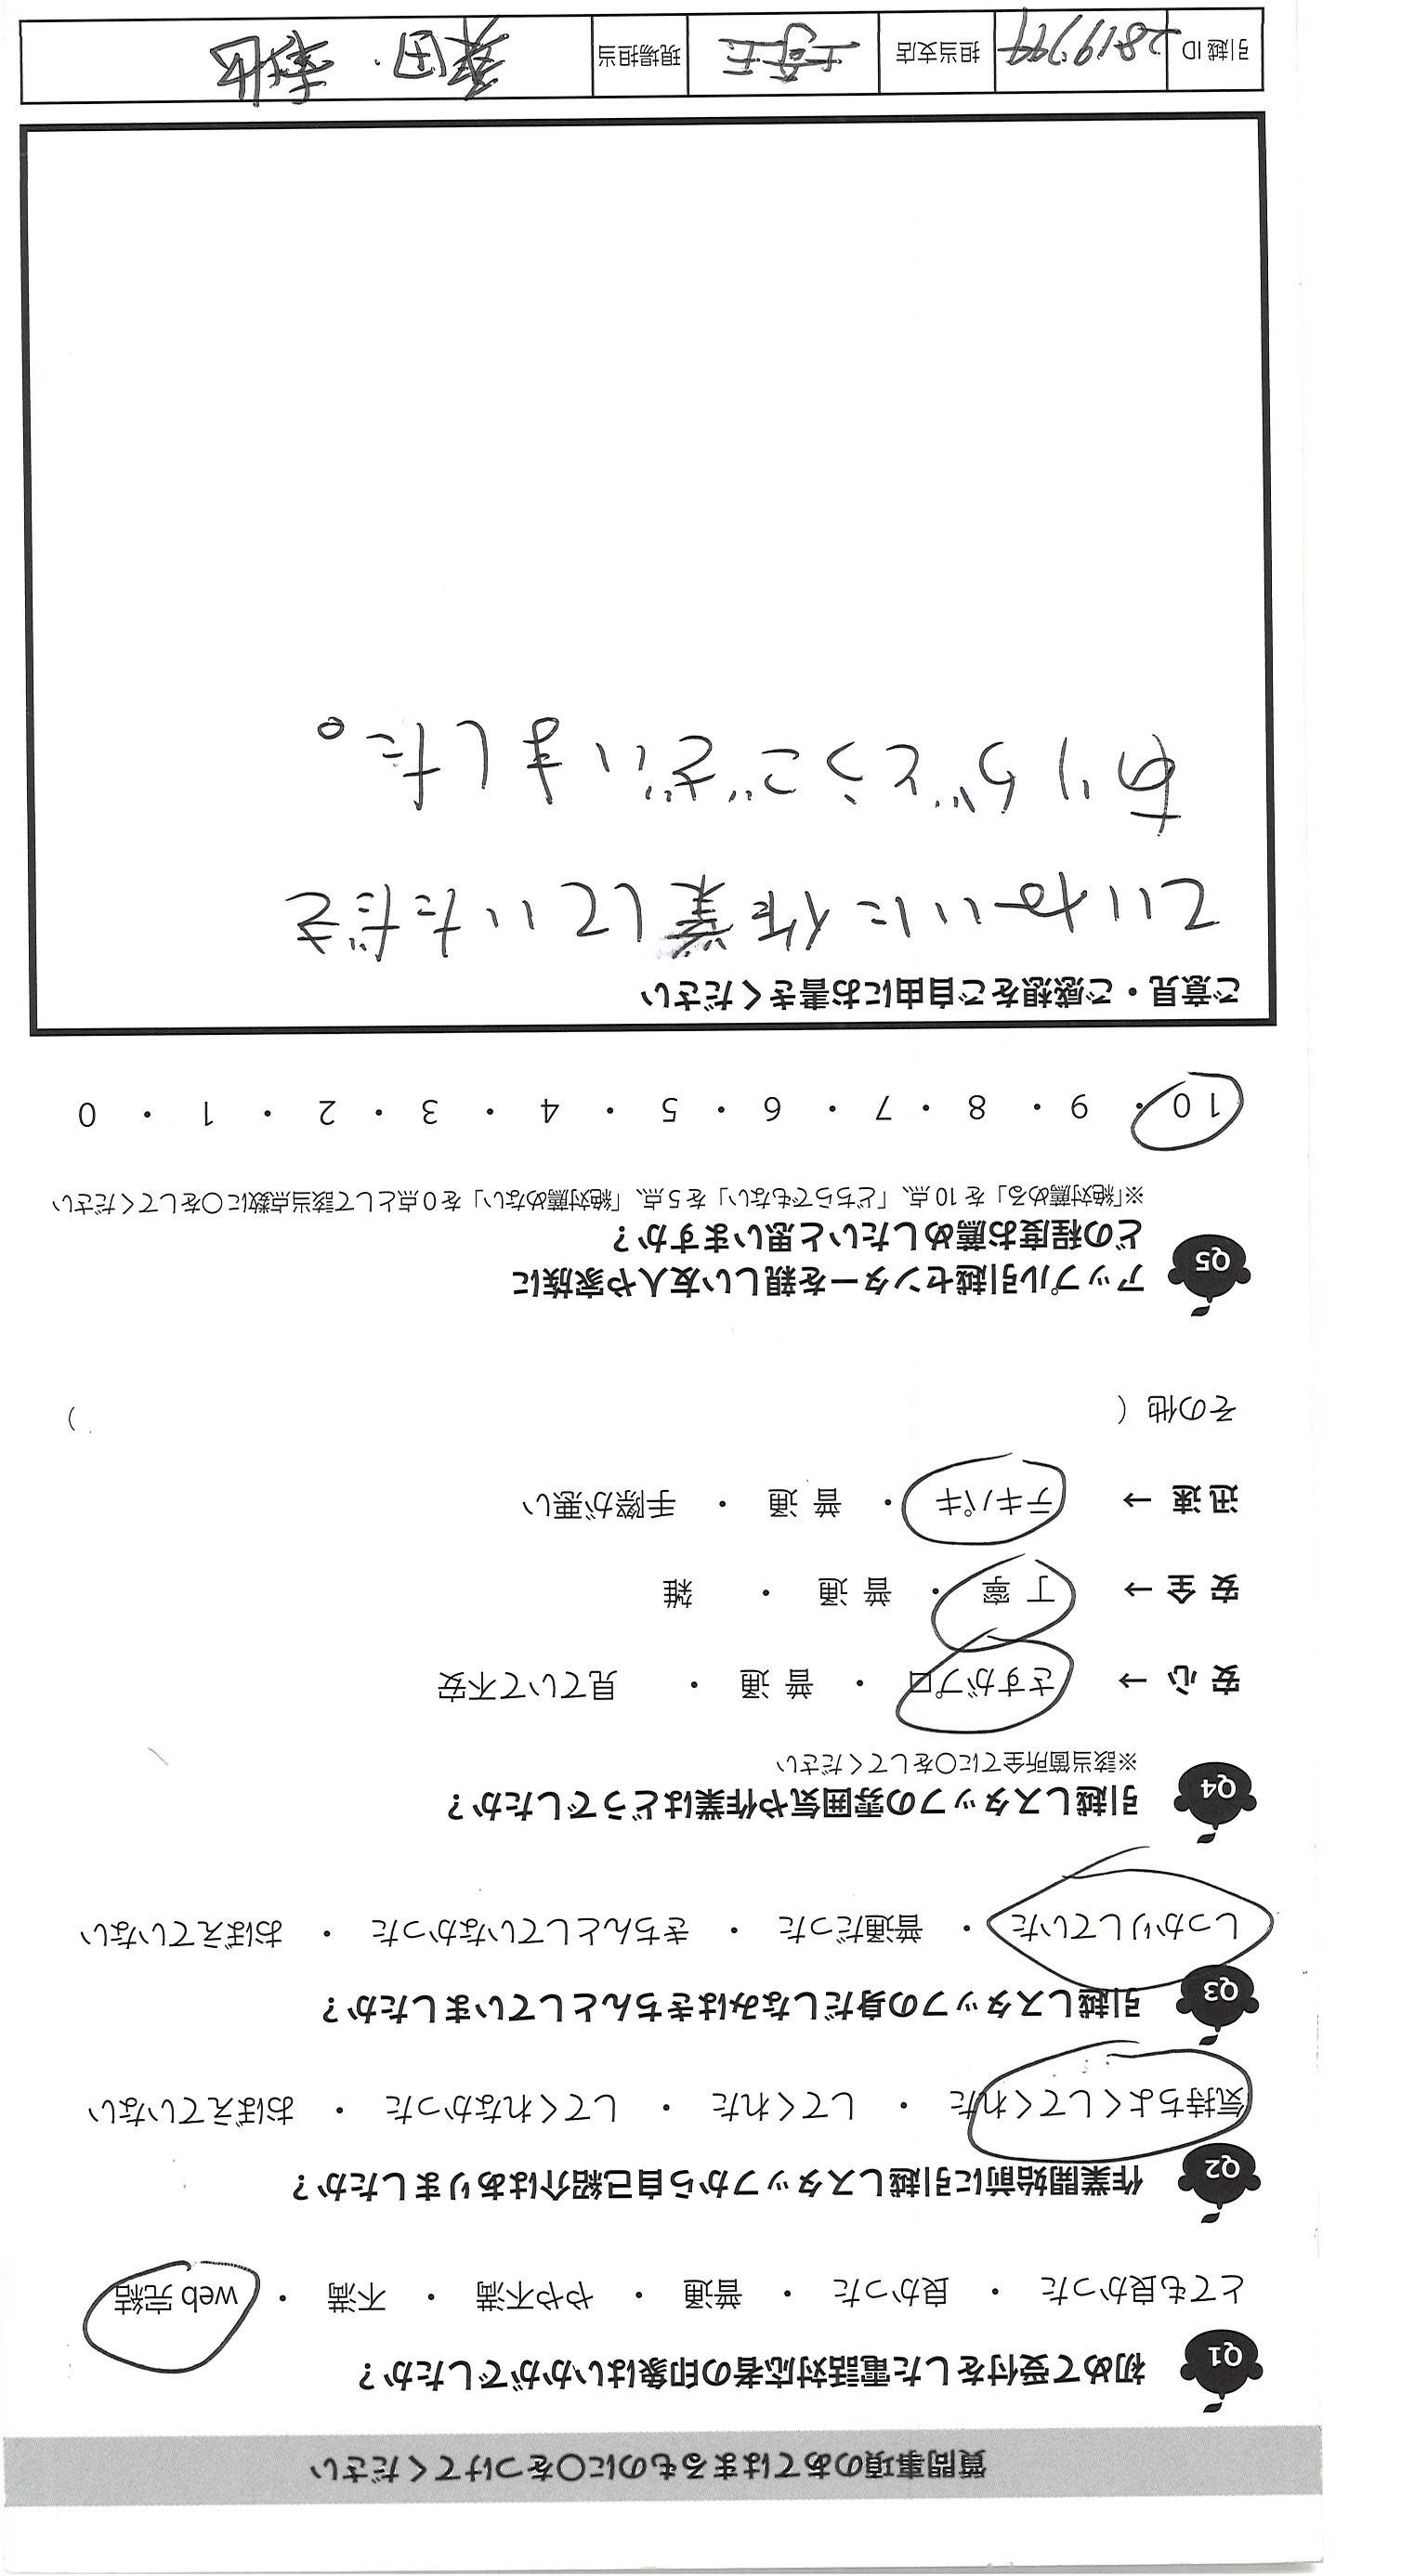 質問事項のあてはまるものに〇をつけてください
Q1 初めて受付をした電話対応者の印象はいかがでしたか？
とても良かった ・ 良かった ・ 普通 ・ やや不満 ・ 不満 ・ web 完結
Q2 作業開始前に引越しスタッフから自己紹介はありましたか？
気持ちよくしてくれた ・ してくれた ・ してくれなかった ・ おぼえていない
Q3 引越しスタッフの身だしなみはきちんとしていましたか？
しっかりしていた ・ 普通だった ・ きちんとしていなかった ・ おぼえていない
Q4 引越しスタッフの雰囲気や作業はどうでしたか？
※該当箇所全てに〇をしてください
安 心 → さすがプロ ・ 普 通 ・ 見ていて不安
安 全 → 丁 寧 ・ 普 通 ・ 雑
迅 速 → テキパキ ・ 普 通 ・ 手際が悪い
その他（ ）
Q5 アップル引越センターを親しい友人や家族に
どの程度お薦めしたいと思いますか？
※「絶対薦める」を 10 点、「どちらでもない」を 5 点、「絶対薦めない」を 0 点として該当点数に〇をしてください
10 ・ 9 ・ 8 ・ 7 ・ 6 ・ 5 ・ 4 ・ 3 ・ 2 ・ 1 ・ 0
ご意見・ご感想をご自由にお書きください
ていねいに作業していただき
ありがとうございました。
引越 ID 2819799 担当支店 埼玉 現場担当